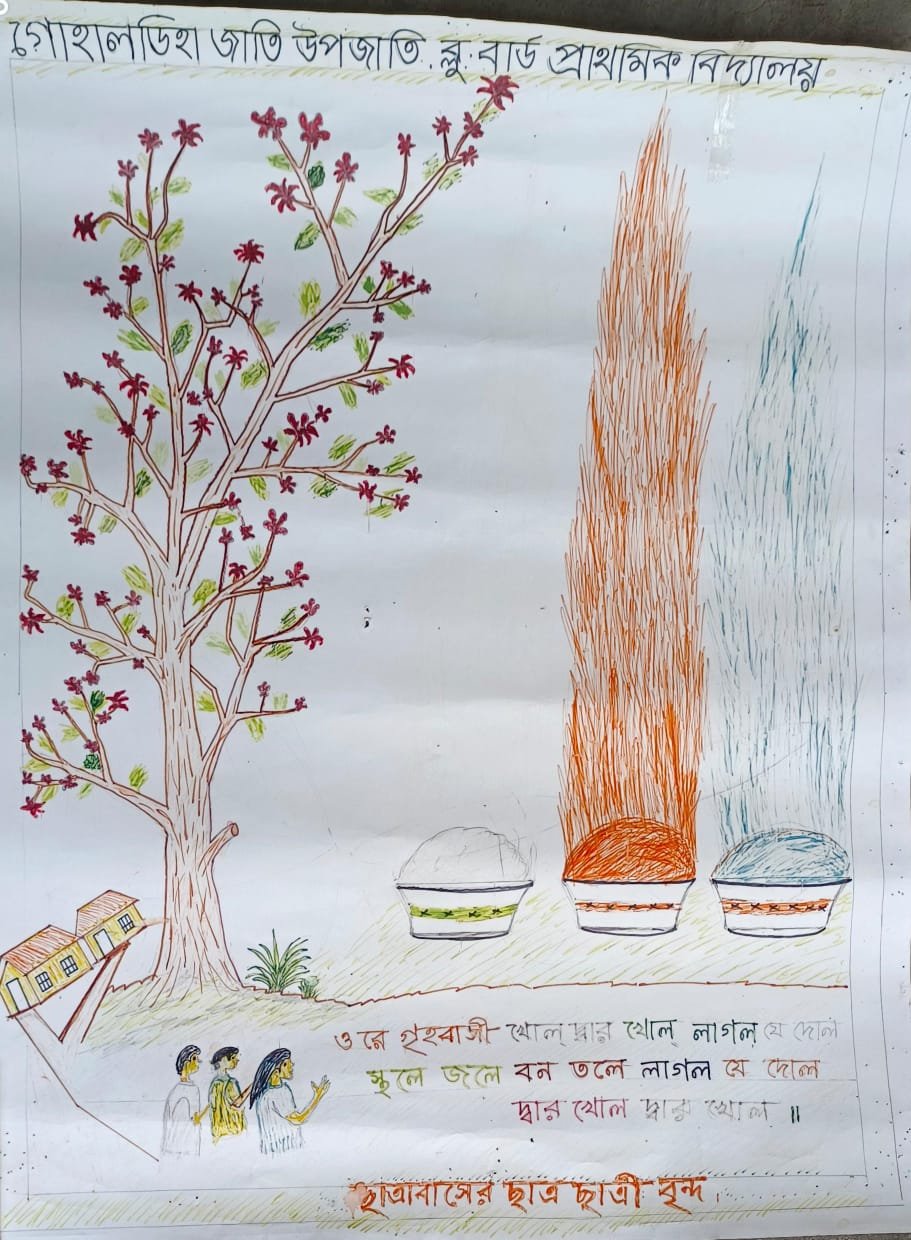 গোহালডিহা জাতি উপজাতি ব্লু বার্ড প্রাথমিক বিদ্যালয়
ওরে গৃহবাসী খোল্ দ্বার খোল্ লাগল্ যে দোল
স্থলে জলে বন তলে লাগল যে দোল
দ্বার খোল দ্বার খোল ॥
ছাত্রাবাসের ছাত্র ছাত্রী বৃন্দ।